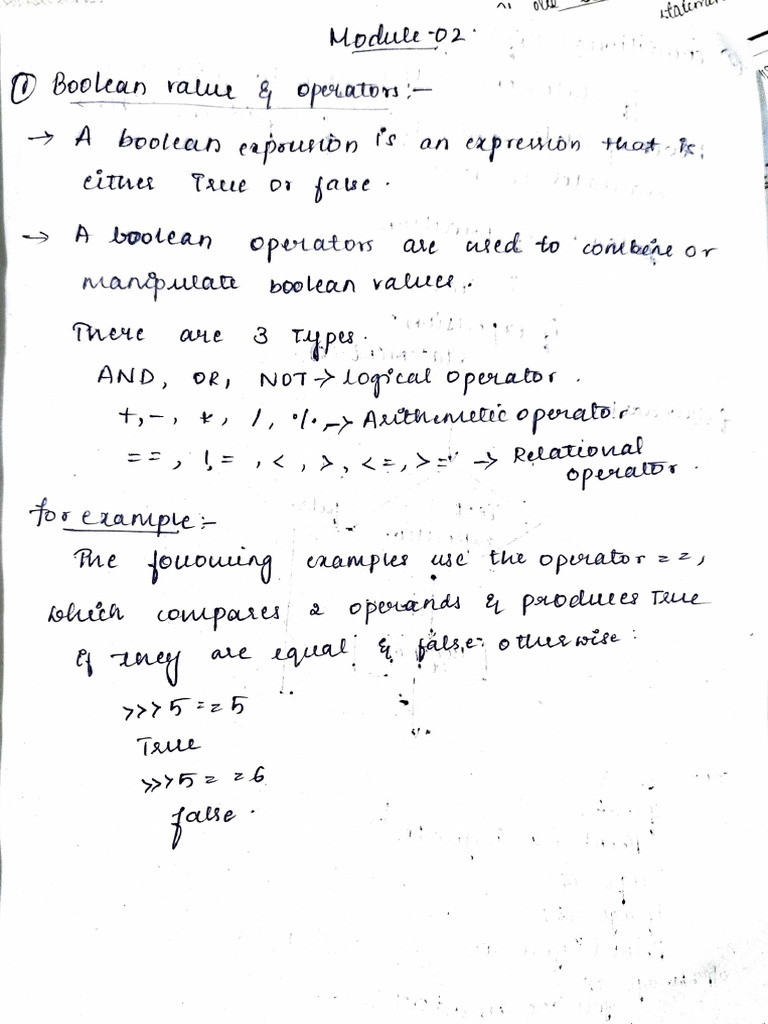 statement
Module-02.
① Boolean value & operators:-
→ A boolean expression is an expression that is
either True or false.
→ A boolean operators are used to combine or
manipulate boolean values.
There are 3 Types.
AND, OR, NOT → logical operator.
+, -, *, /, %, → Arithemetic operator
==, !=, <, >, <=, >= → Relational
operator.
for example:-
The following examples use the operator ==,
which compares 2 operands & produces True
if they are equal & false otherwise:
>>> 5 == 5
True
>>> 5 == 6
false.